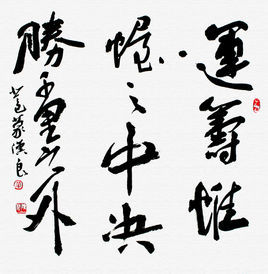 運籌帷
幄之中決
勝千里之外